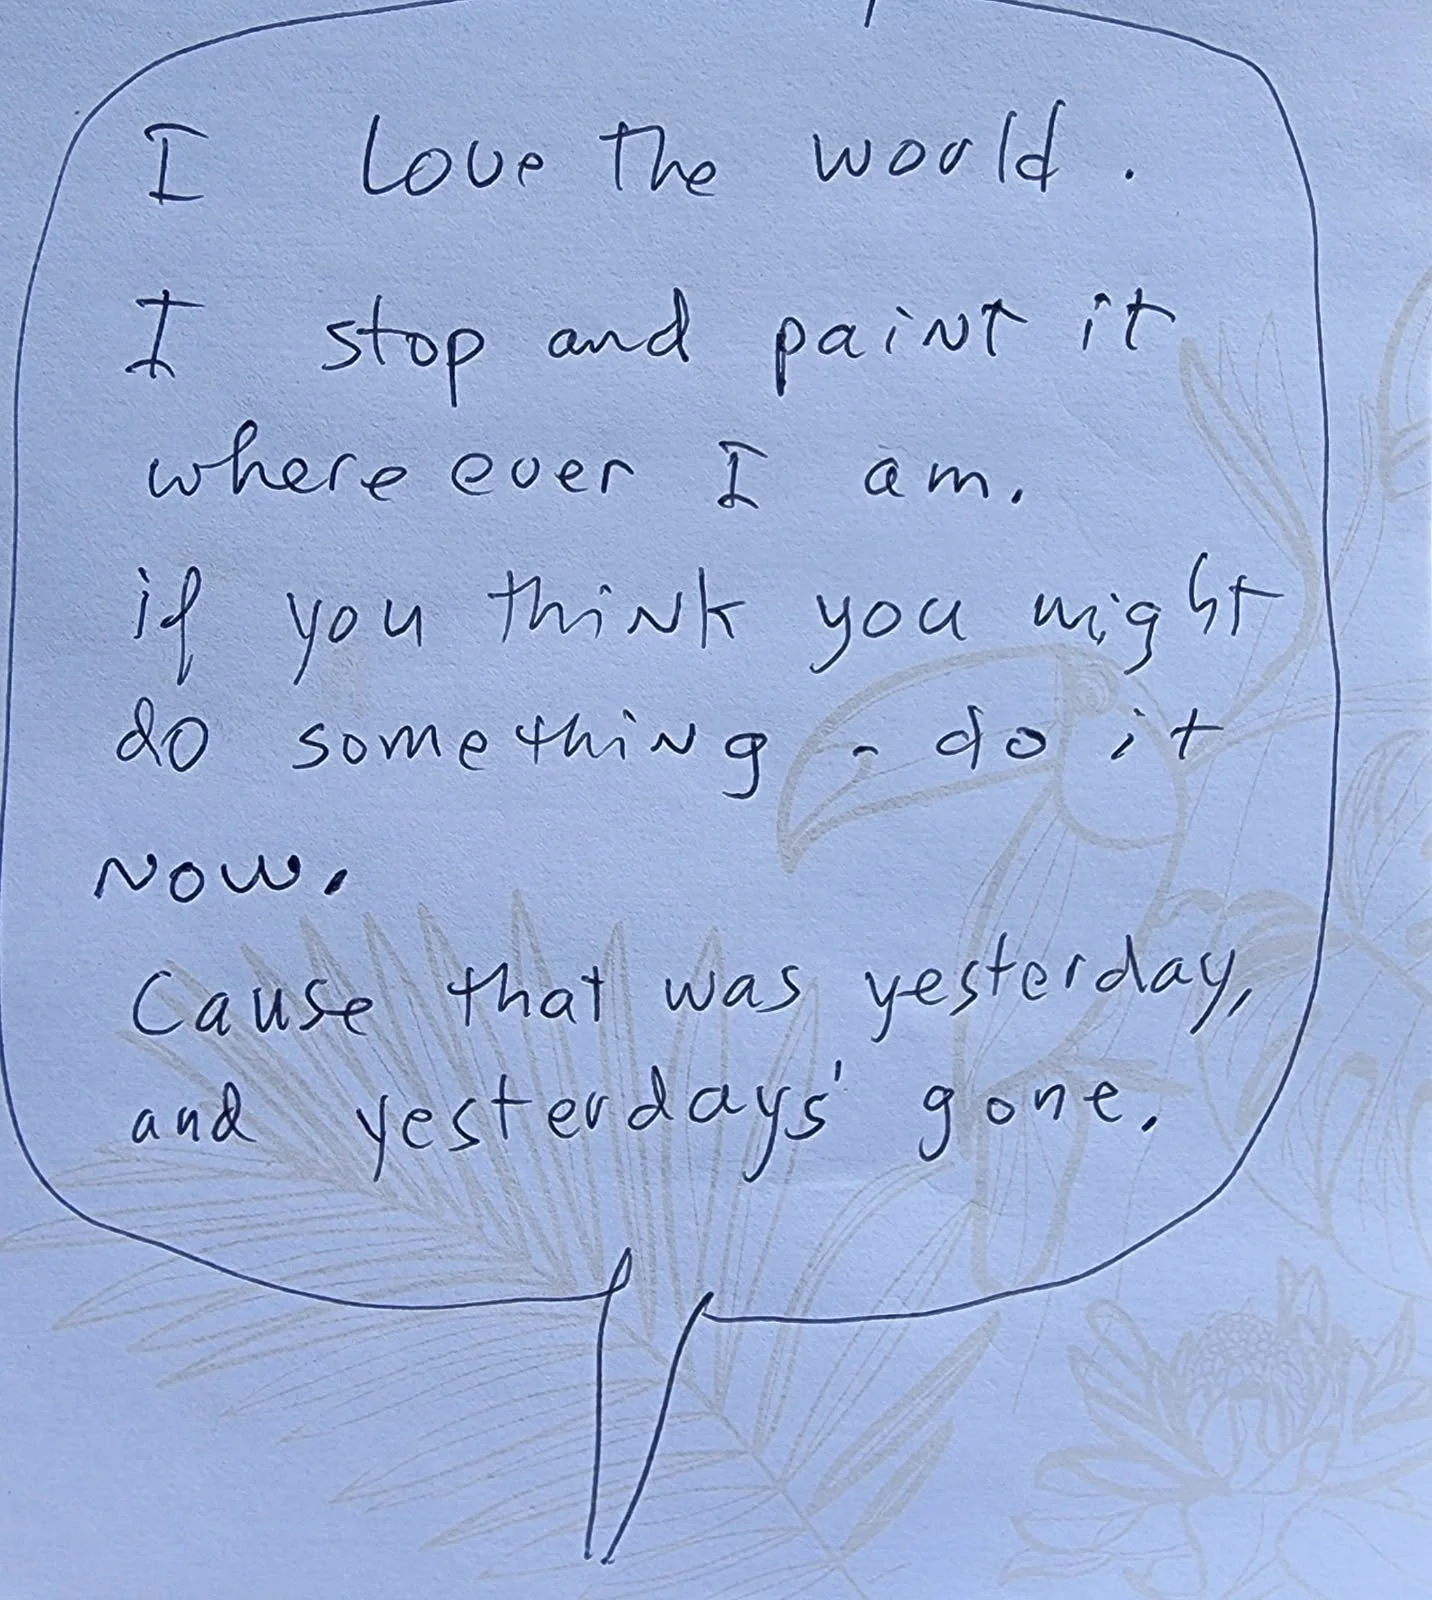 I love the world.
I stop and paint it
where ever I am.
if you think you might
do something - do it
Now.
Cause that was yesterday,
and yesterdays' gone.